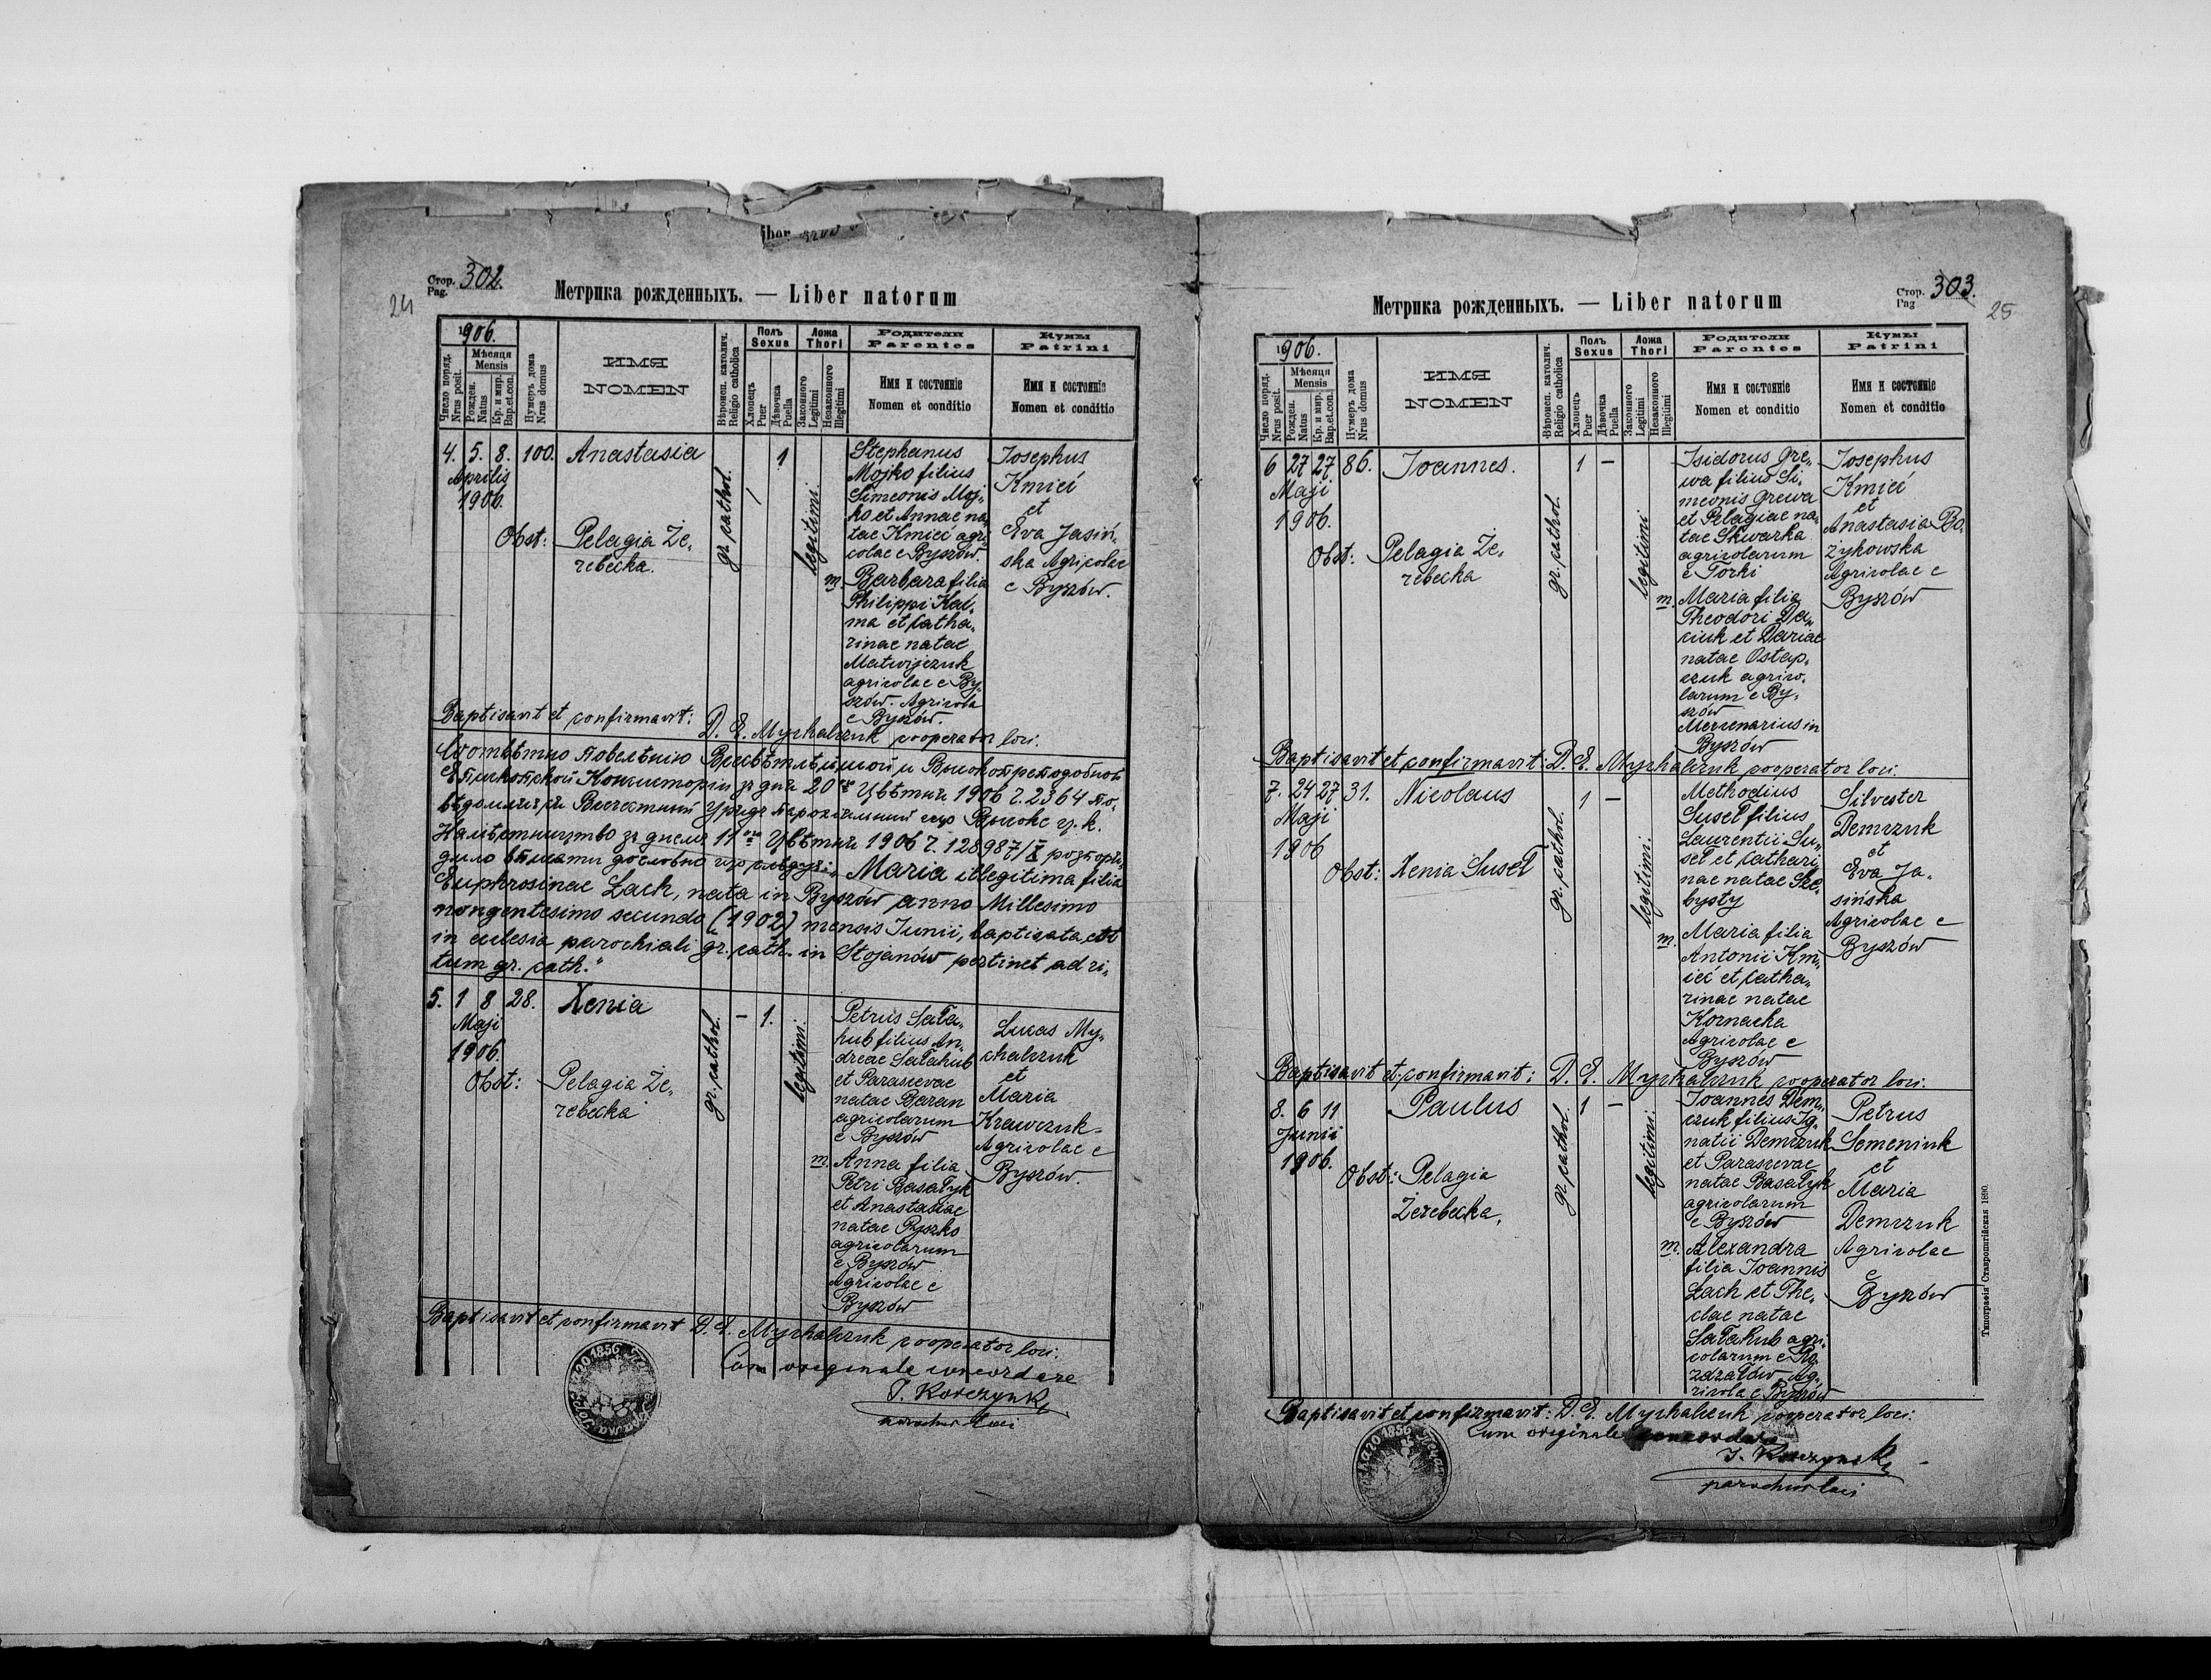 Стор. 302.
Pag.
24
Метрика рожденныхъ. — Liber natorum
1906.
Число поряд.
Nrus posit.
Мѣсяця
Mensis
Рожден.
Natus
Кр. и мир.
Bap. et con.
Нумеръ дома
Nrus domus
ИМЯ
NOMEN
Вѣроисп. католич.
Religio catholica
Полъ
Sexus
Хлопецъ
Puer
Дѣвочка
Puella
Ложа
Thori
Законного
Legitimi
Незаконного
Illegitimi
Родители
Parentes
Имя и состоянıе
Nomen et conditio
Кумы
Patrini
Имя и состоянıе
Nomen et conditio
4. 5. 8. 100. Anastasia
Aprilis
1906.
Obst: Pelagia Że„
rebecka.
gr. cathol.
1
legitimi.
Stephanus
Mojko filius
Simeonis Moj„
ko et Annae na„
tae Kmieć agri„
colae e Byszów.
m. Barbara filia
Philippi Kai„
ma et Catha„
rinae natae
Matwijczuk
agricolae e By„
szów. Agricola
e Byszów.
Josephus
Kmieć
et
Eva Jasiń„
ska Agricolae
e Byszów.
Baptisavit et confirmavit: D. E. Mychalczuk cooperator loci.
Maria illegitima filia
Euphrosinae Łach, nata in Byszów anno Millesimo
nongentesimo secundo (1902) mensis Junii, baptisata
in eclesia parochiali gr. cath. in Stojanów pertinet ad ri„
tum gr. cath."
5. 1 8 28. Xenia
Maji
1906.
Obst: Pelagia Że„
rebecka
gr. cathol.
– 1.
legitimi.
Petrus Sała„
hub filius An„
dreae Sałahub
et Parascevae
natae Baran
agricolarum
e Byszów
m. Anna filia
Petri Basałyk
et Anastasiae
natae Pyszko
agricolarum
e Byszów
Agricolae e
Byszów
Lucas My„
chalczuk
et
Maria
Krawczuk
Agricolae e
Byszów.
Baptisavit et confirmavit D. E. Mychalczuk cooperator loci.
Cum originale concordare
parochus loci
Метрика рожденныхъ. — Liber natorum
Стор. 303.
Pag
25
1906.
Число поряд.
Nrus posit.
Мѣсяця
Mensis
Рожден.
Natus
Кр. и мир.
Bap. et con.
Нумеръ дома
Nrus domus
ИМЯ
NOMEN
Вѣроисп. католич.
Religio catholica
Полъ
Sexus
Хлопецъ
Puer
Дѣвочка
Puella
Ложа
Thori
Законного
Legitimi
Незаконного
Illegitimi
Родители
Parentes
Имя и состоянıе
Nomen et conditio
Кумы
Patrini
Имя и состоянıе
Nomen et conditio
6 27 27 86. Joannes.
Maji
1906.
Obst: Pelagia Że„
rebecka
gr. cathol.
1 –
legitimi
Isidorus Gre„
wa filius Si„
meonis Grewa
et Pelagiae na„
tae Skwarka
agricolarum
e Torki
m. Maria filia
Theodori Da„
ciuk et Dariae
natae Ostap„
czuk agrico„
larum e By„
szów
Mercenarius in
Byszów
Josephus
Kmieć
et
Anastasia Bo„
żykowska
Agricolae e
Byszów
Baptisavit et confirmavit: D. E. Mychalczuk cooperator loci.
7. 24 27 31. Nicolaus
Maji
1906
Obst: Xenia Suseł
gr. cathol.
1 –
legitimi.
Methodius
Suseł filius
Laurentii Su„
seł et Cathari
nae natae Sze„
bysty
m. Maria filia
Antonii Km„
ieć et Catha„
rinae natae
Kornacka
Agricolae e
Byszów
Silvester
Demczuk
et
Eva Ja„
sińska
Agricolae e
Byszów
Baptisavit et confirmavit: D. E. Mychalczuk cooperator loci.
8. 6 11 Paulus
Junii
1906.
Obst: Pelagia
Żerebecka,
gr. cathol.
1 –
legitimi.
Joannes Dem„
czuk filius Ig„
natii Demczuk
et Parascevae
natae Basałyk
agricolarum
e Byszów
m. Alexandra
filia Joannis
Łach et The„
clae natae
Sałahub agri„
colarum e Ro„
zdżałów. Ag„
ricolae Byszów
Petrus
Semeniuk
et
Maria
Demczuk
Agricolae
e
Byszów
Baptisavit et confirmavit: D. E. Mychalczuk cooperator loci.
Cum originale concordare
parochus loci
Типографія Ставропигійская 1890.